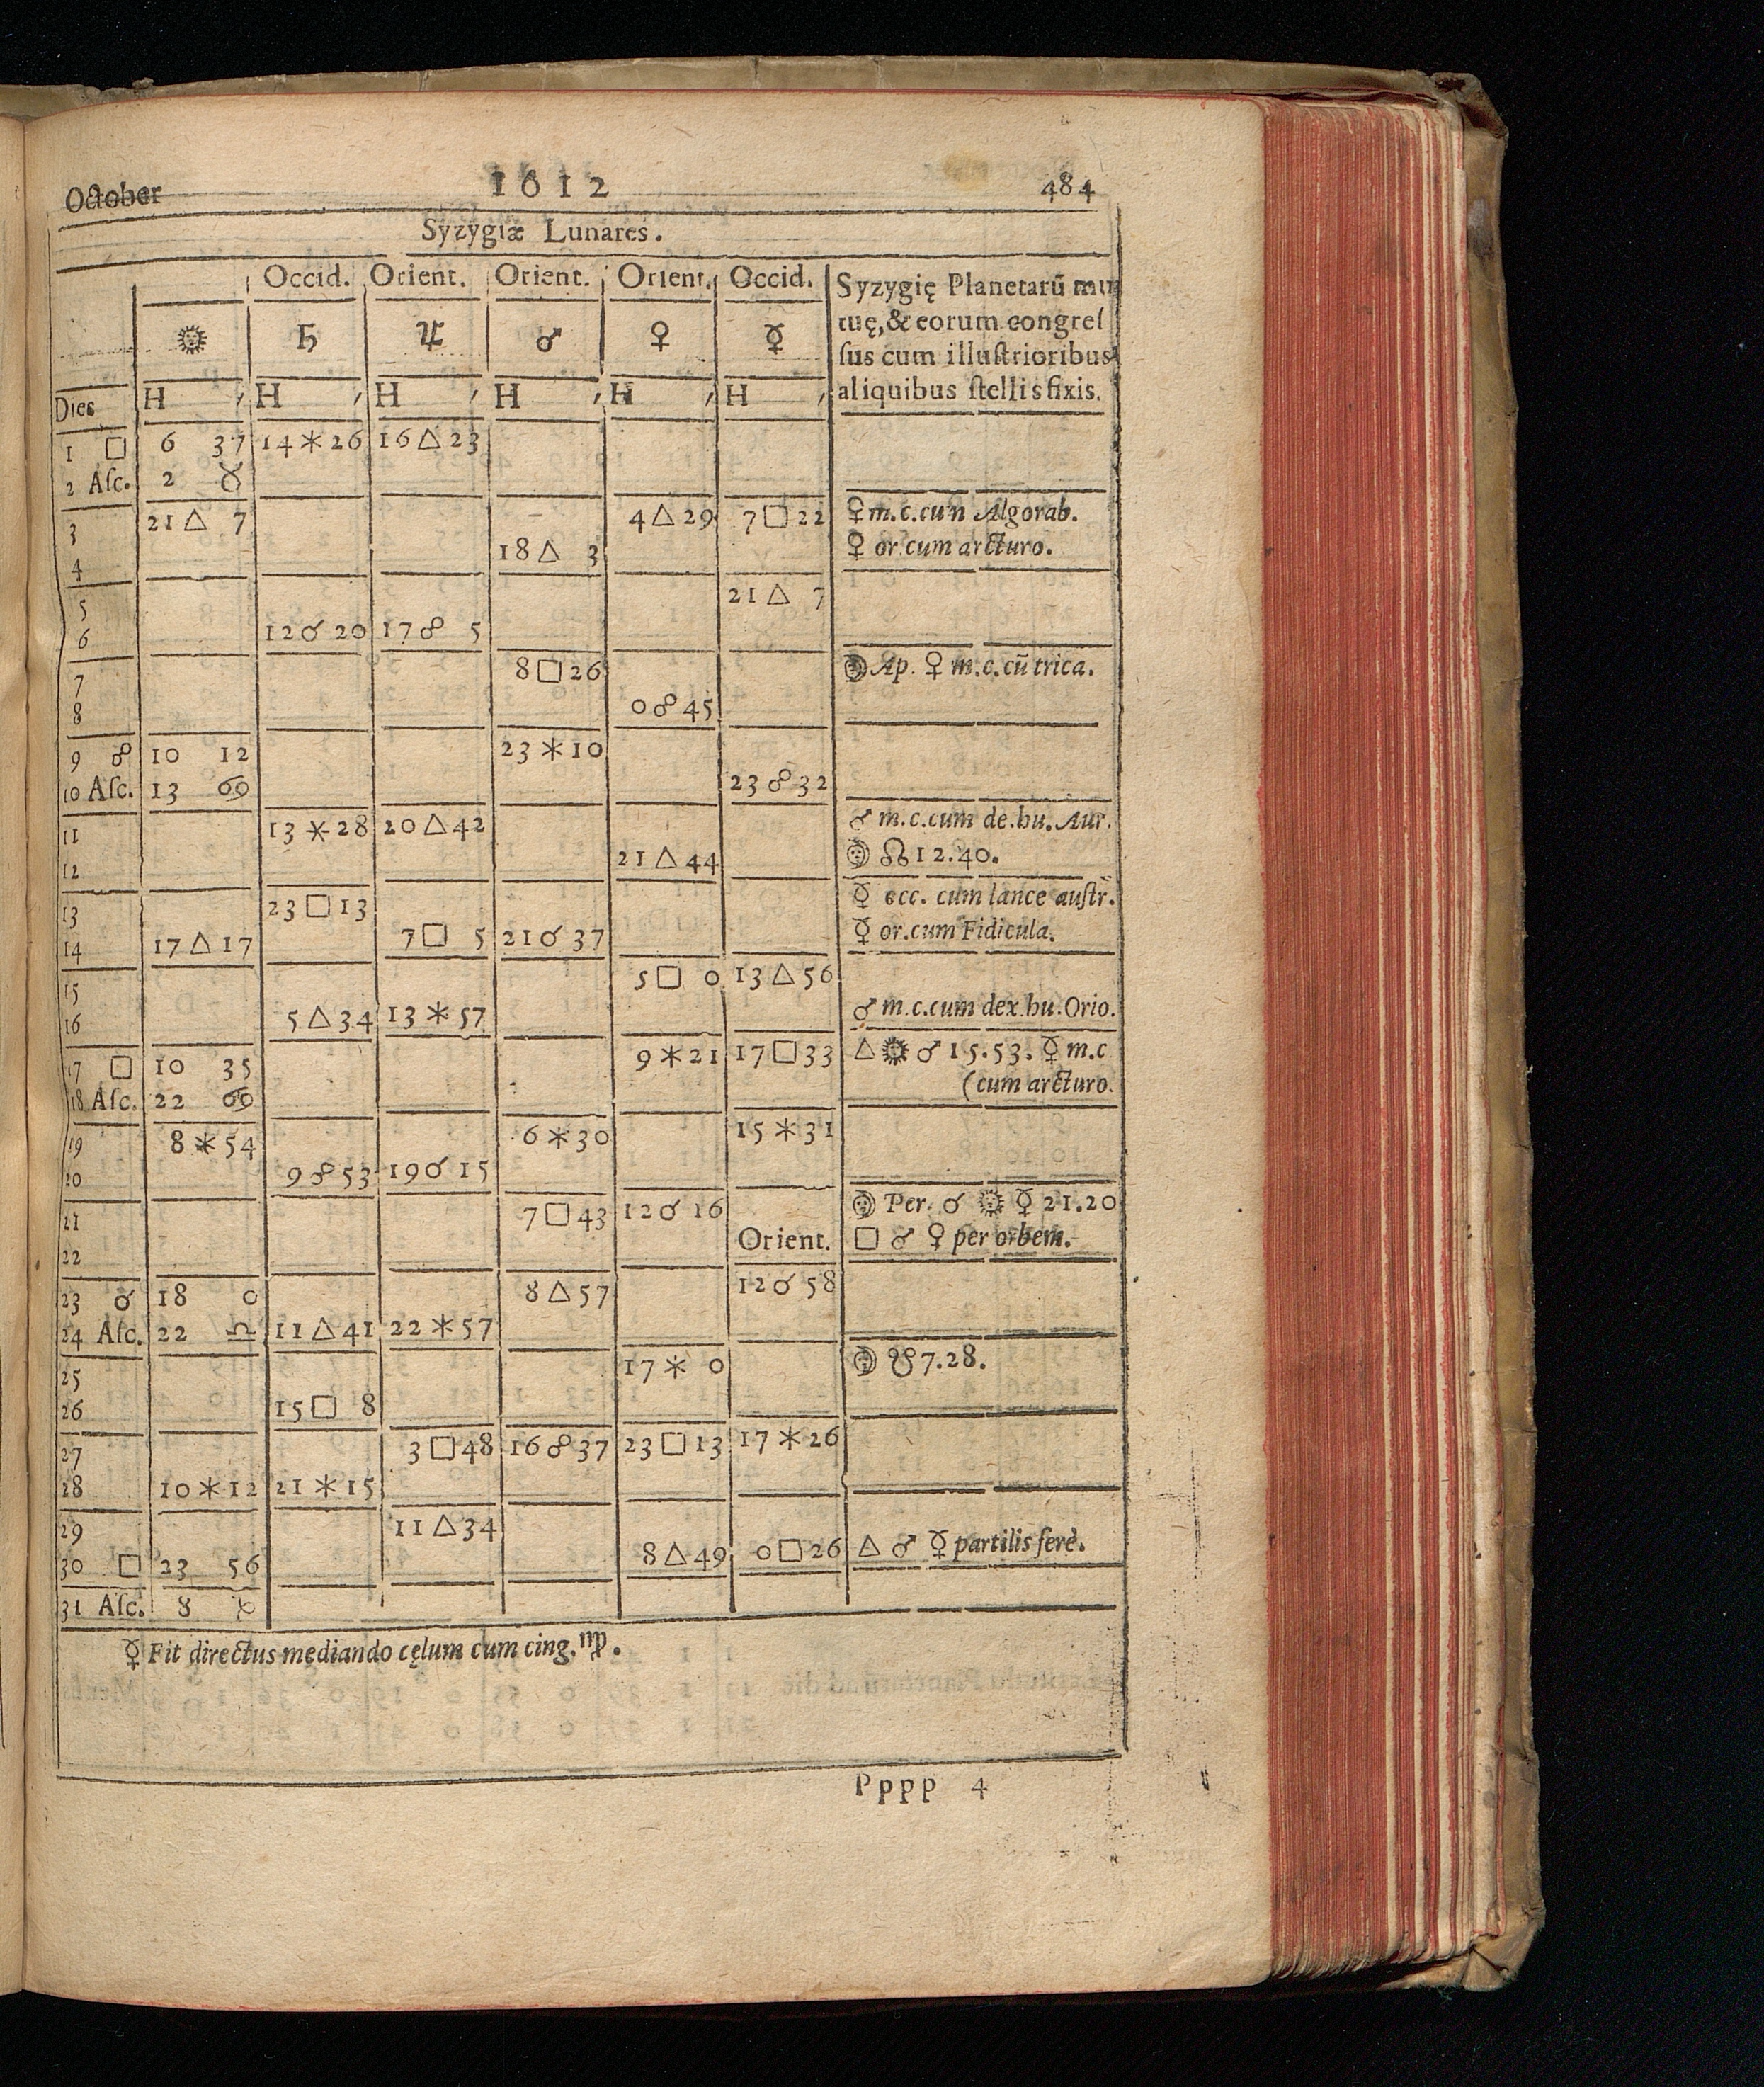 October 1612 484
Syzygiæ Lunares.
Occid. Orient. Orient. Orient. Occid. Syzygię Planetarū mu
☉ ♄ ♃ ♂ ♀ ☿ tuę, & eorum congreſ
ſus cum illuſtrioribus
Dies H ′ H ′ H ′ H ′ H ′ H ′ aliquibus ſtellis fixis.
1 □ 6 37 14 ⚹ 26 16 △ 23
2 Aſc. 2 ♉
3 21 △ 7 4 △ 29 7 □ 22 ♀ m.c.cun Algorab.
4 18 △ 3 ♀ or.cum arcturo.
5 21 △ 7
6 12 ☌ 20 17 ☍ 5
7 8 □ 26 ☽ Ap. ♀ m.c.cū trica.
8 0 ☍ 45
9 ☍ 10 12 23 ⚹ 10
10 Aſc. 13 ♋ 23 ☍ 32
11 13 ⚹ 28 20 △ 42 ♂ m.c.cum de.hu. Aur.
12 21 △ 44 ☽ ☊ 12.40.
13 23 □ 13 ☿ occ. cum lance auſtr.
14 17 △ 17 7 □ 5 21 ☌ 37 ☿ or.cum Fidicula.
15 5 □ 0 13 △ 56
16 5 △ 34 13 ⚹ 57 ♂ m.c.cum dex.hu.Orio.
17 □ 10 35 9 ⚹ 21 17 □ 33 △ ☉ ♂ 15.53. ☿ m.c
18 Aſc. 22 ♋ (cum arcturo.
19 8 ⚹ 54 6 ⚹ 30 15 ⚹ 31
20 9 ☍ 53 19 ☌ 15
21 7 □ 43 12 ☌ 16 ☽ Per. ☌ ☉ ☿ 21.20
22 Orient. □ ♂ ♀ per orbem.
23 ☌ 18 0 8 △ 57 12 ☌ 58
24 Aſc. 22 ♎ 11 △ 41 22 ⚹ 57
25 17 ⚹ 0 ☽ ☋ 7.28.
26 15 □ 8
27 3 □ 48 16 ☍ 37 23 □ 13 17 ⚹ 26
28 10 ⚹ 12 21 ⚹ 15
29 11 △ 34
30 □ 23 56 8 △ 49 0 □ 26 △ ♂ ☿ partilis ferè.
31 Aſc. 8
☿ Fit directus mediando cęlum cum cing. ♍.
Pppp 4